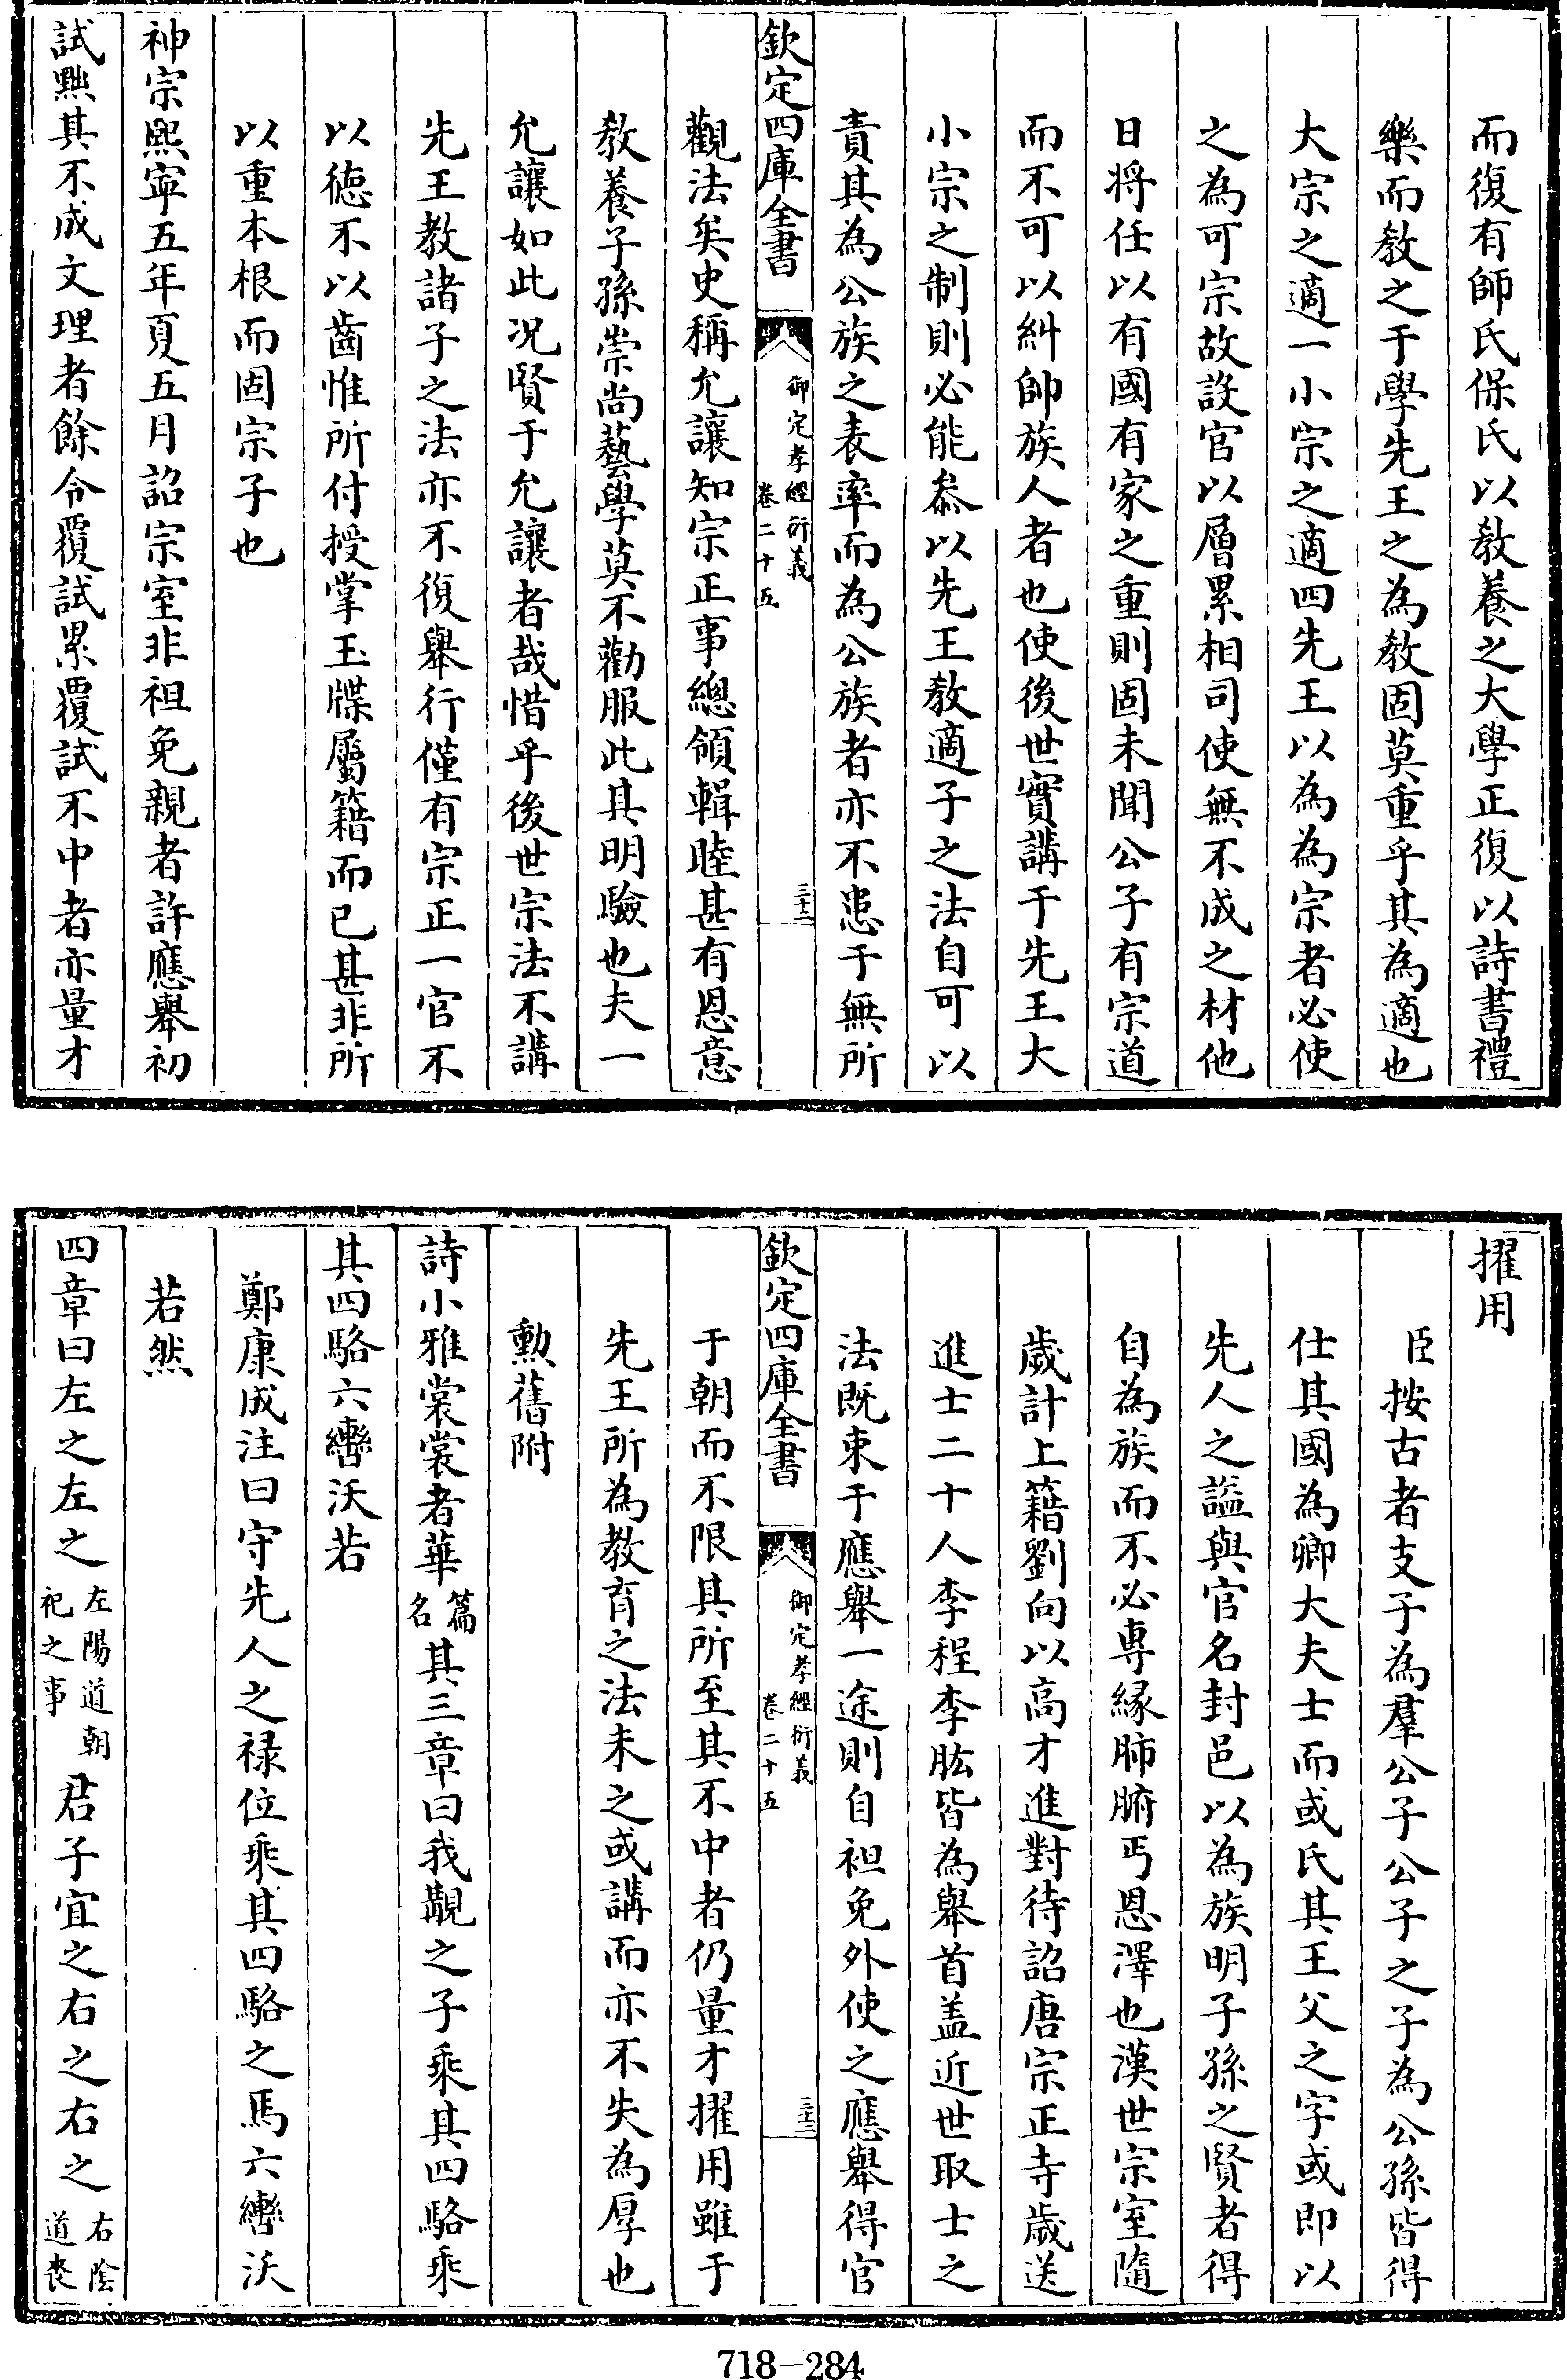 而復有師氏保氏以敎養之大學正復以詩書禮
樂而敎之于學先王之為敎固莫重乎其為適也
大宗之適一小宗之適四先王以為為宗者必使
之為可宗故設官以層累相司使無不成之材他
日將任以有國有家之重則固未聞公子有宗道
而不可以糾帥族人者也使後世實講于先王大
小宗之制則必能叅以先王敎適子之法自可以
責其為公族之表率而為公族者亦不患于無所
欽定四庫全書
御定孝經衍義
卷二十五
三十二
觀法矣史稱允讓知宗正事總領輯睦甚有恩意
敎養子孫崇尚藝學莫不勸服此其明驗也夫一
允讓如此况賢于允讓者哉惜乎後世宗法不講
先王敎諸子之法亦不復舉行僅有宗正一官不
以德不以齒惟所付授掌玉牒屬籍而已甚非所
以重本根而固宗子也
神宗熙寧五年夏五月詔宗室非袒免親者許應舉初
試黜其不成文理者餘令覆試累覆試不中者亦量才
擢用
臣按古者支子為羣公子公子之子為公孫皆得
仕其國為卿大夫士而或氏其王父之字或即以
先人之諡與官名封邑以為族明子孫之賢者得
自為族而不必專緣肺腑丐恩澤也漢世宗室隨
歲計上籍劉向以高才進對待詔唐宗正寺歲送
進士二十人李程李肱皆為舉首盖近世取士之
法既束于應舉一途則自袒免外使之應舉得官
欽定四庫全書
御定孝經衍義
卷二十五
三十三
于朝而不限其所至其不中者仍量才擢用雖于
先王所為敎育之法未之或講而亦不失為厚也
勲舊附
詩小雅裳裳者華篇名其三章曰我覯之子乘其四駱乘
其四駱六轡沃若
鄭康成注曰守先人之祿位乘其四駱之馬六轡沃
若然
四章曰左之左之左陽道朝祀之事君子宜之右之右之右陰道喪
718-284